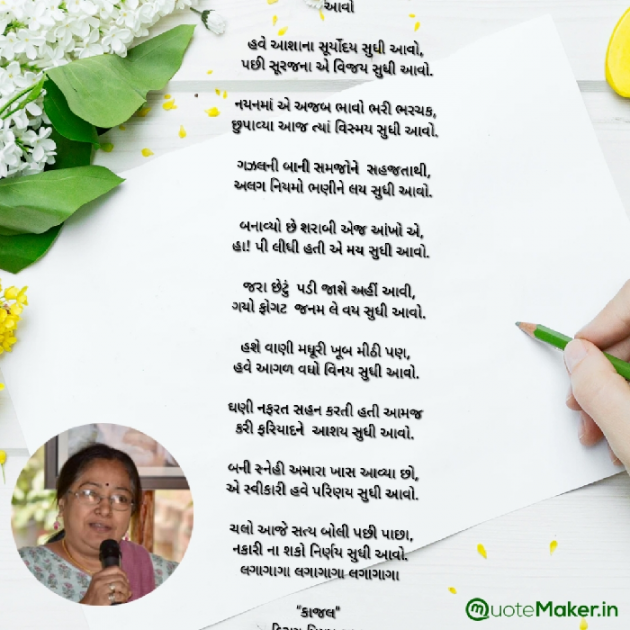 આવો
હવે આશાના સૂર્યોદય સુધી આવો,
પછી સૂરજના એ વિજય સુધી આવો.
નયનમાં એ અજબ ભાવો ભરી ભરચક,
છુપાવ્યા આજ ત્યાં વિસ્મય સુધી આવો.
ગઝલની બાની સમજોને સહજતાથી,
અલગ નિયમો ભણીને લય સુધી આવો.
બનાવ્યો છે શરાબી એજ આંખો એ,
હા! પી લીધી હતી એ મય સુધી આવો.
જરા છેટું પડી જાશે અહીં આવી,
ગયો ફોગટ જનમ લે વય સુધી આવો.
હશે વાણી મધૂરી ખૂબ મીઠી પણ,
હવે આગળ વધો વિનય સુધી આવો.
ઘણી નફરત સહન કરતી હતી આમજ
કરી ફરિયાદને આશય સુધી આવો.
બની સ્નેહી અમારા ખાસ આવ્યા છો,
એ સ્વીકારી હવે પરિણય સુધી આવો.
ચલો આજે સત્ય બોલી પછી પાછા,
નકારી ના શકો નિર્ણય સુધી આવો.
લગાગાગા લગાગાગા લગાગાગા
"કાજલ"
QuoteMaker.in